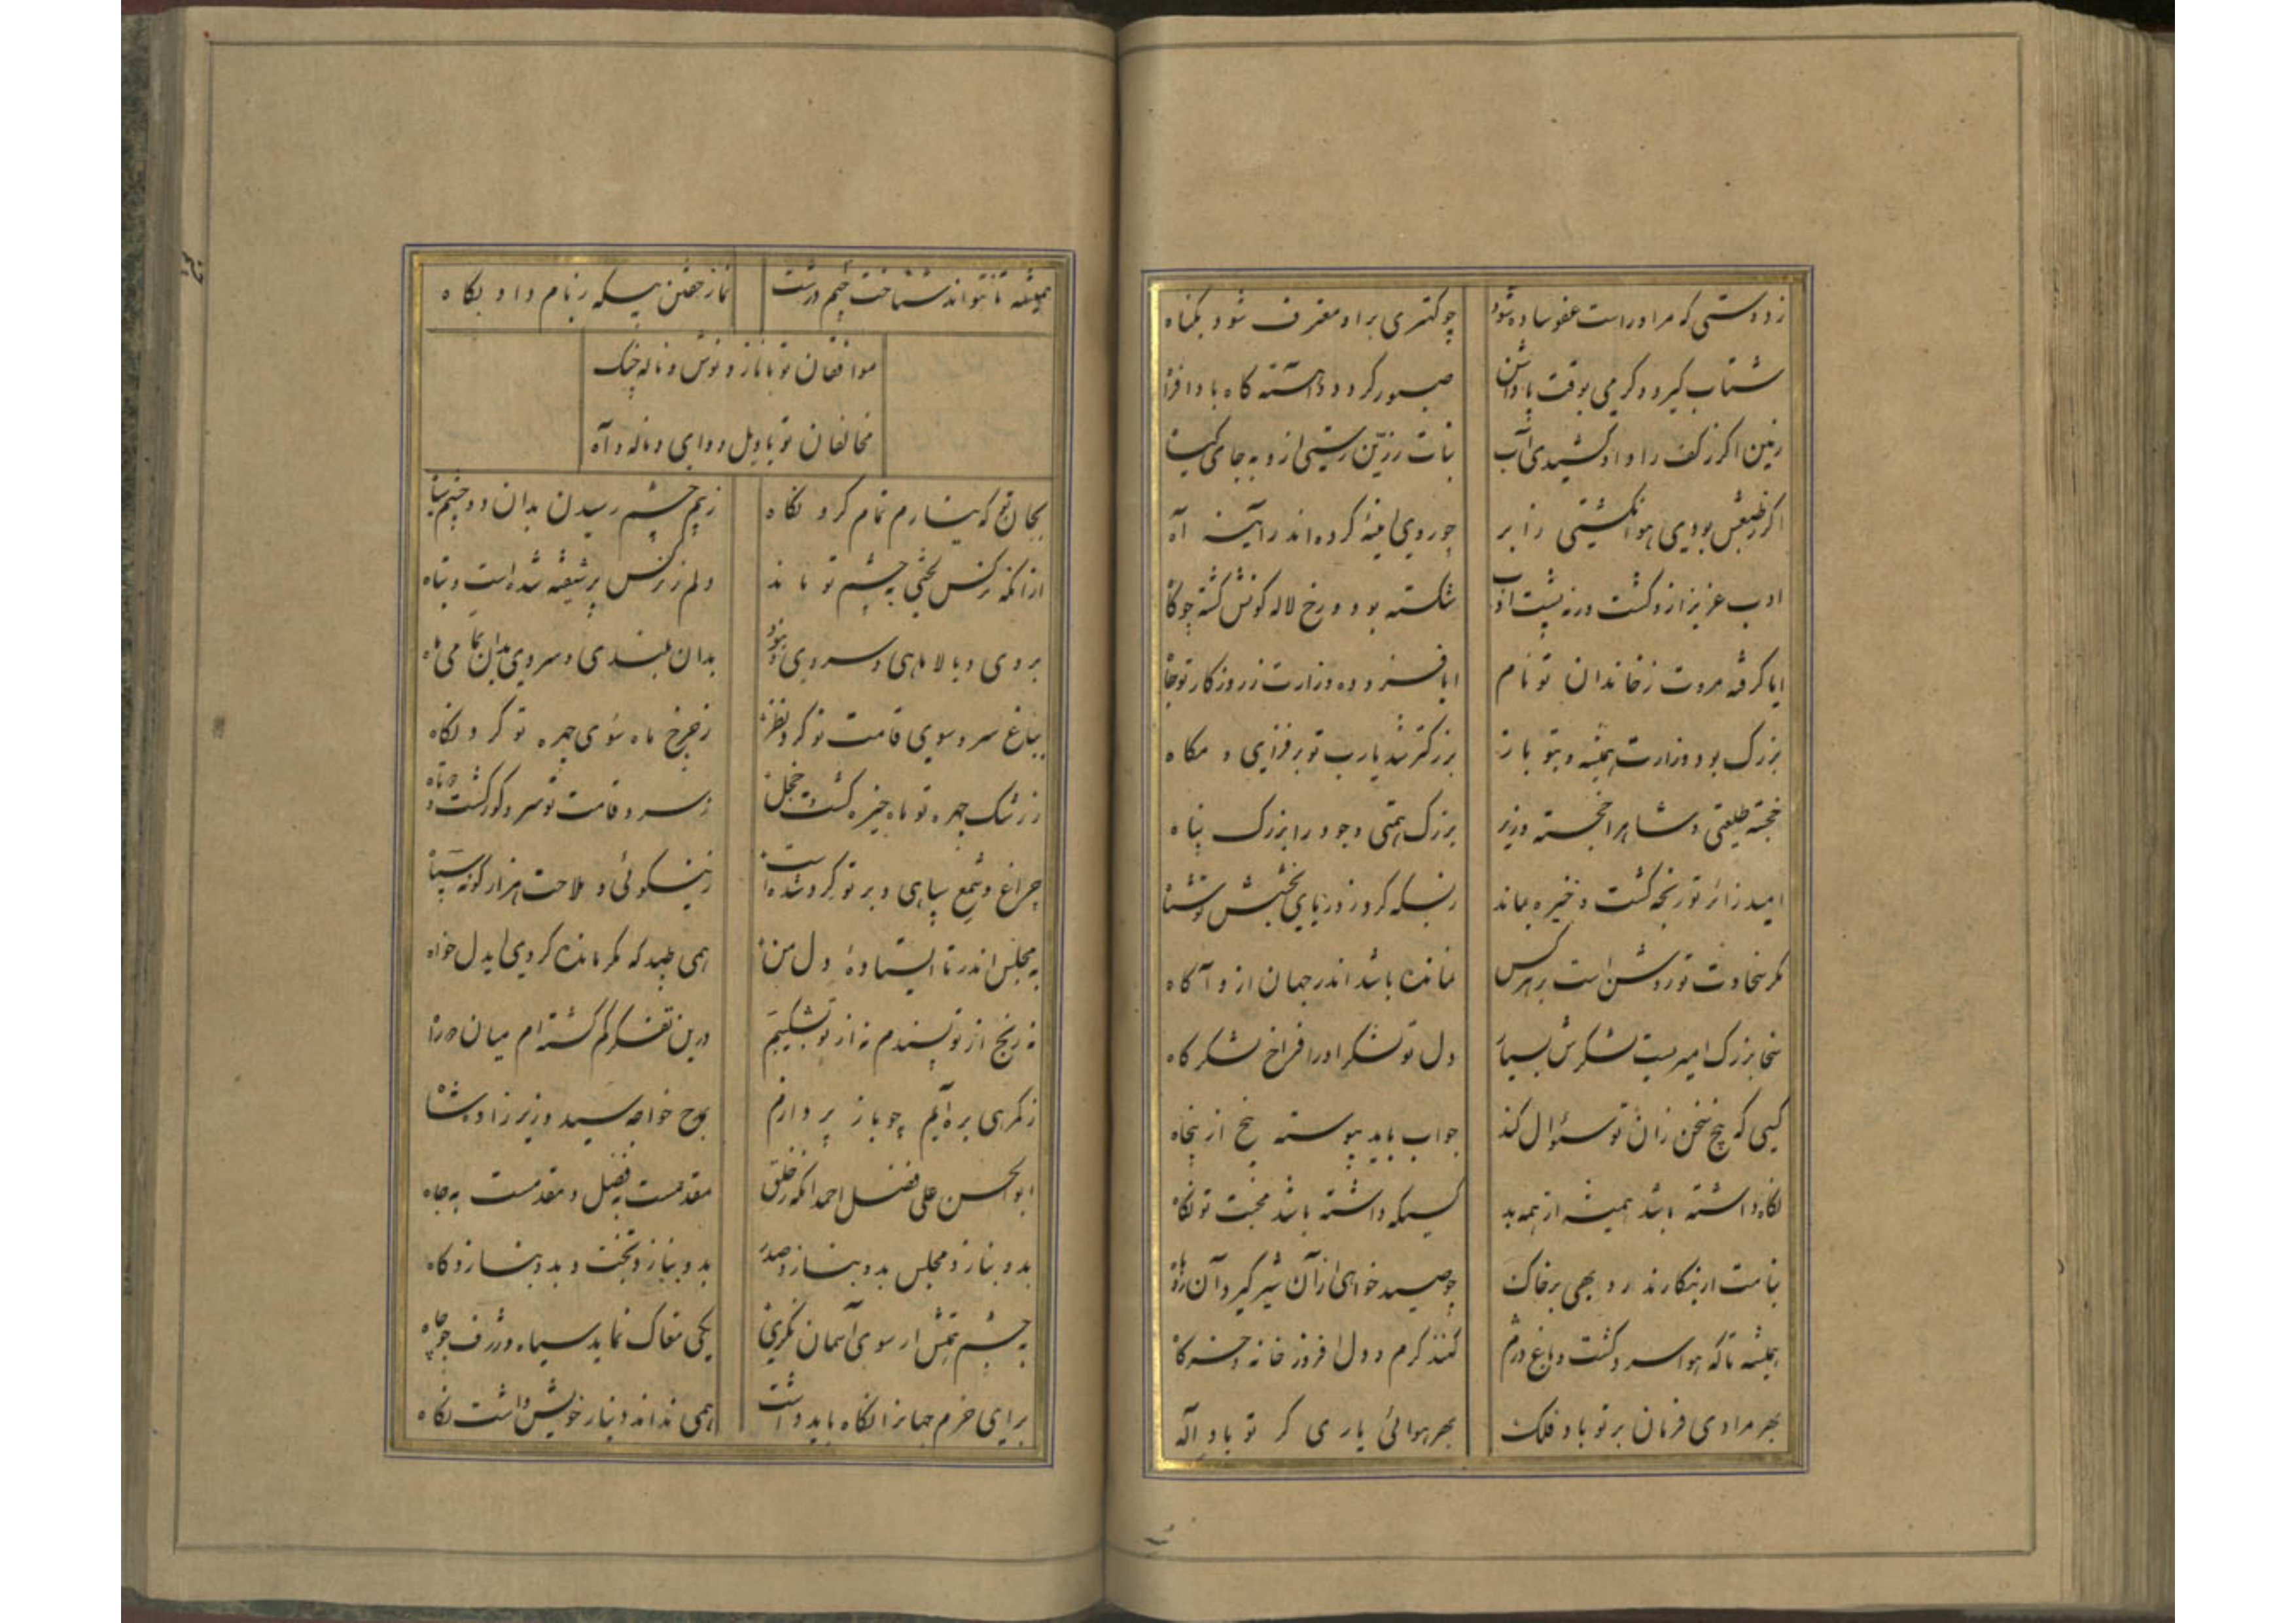 ز دوستی که مر او راست عفو ساده شود
چو کهتری بر او معترف شود بگناه
شتاب گیرد و گرمی بوقت پاداشن
صبور گردد و آهسته گاه بادافراه
زمین اگر ز کف راد او کشیدی آب
نبات زرین رستی ازو به جای گیاه
اگر بطبعش بودی هوا نگشتی زابر
چو روی آینه کرده اندر آینه آه
ادب عزیز ازو گشت ورنه پشت ادب
شکسته بود و رخ لاله گونش گشته چو کاه
ایا گرفته مروت ز خاندان تو نام
ایا فزوده وزارت ز روزگار تو جاه
بزرگ بود وزارت همیشه و بتو باز
بزرگتر شد یارب تو بر فزای و مکاه
خجسته طلعتی و شاه را خجسته وزیر
بزرگ همتی و جود را بزرگ پناه
امید زائر تو رنجه گشت و خیره بماند
ز بسکه کرد ز دریای بخشش تو شناه
مگر سخاوت تو روشن است بر هر کس
نمانده باشد اندر جهان ازو آگاه
سخا بزرگ امیریست لشکرش بسیار
دل تو لشکر او را فراخ لشکرگاه
کسی که پنج سخن زان تو سئوال کند
جواب باید پیوسته پنج از پنجاه
نگاه داشته باشد همیشه از همه بد
کسیکه داشته باشد محبت تو نگاه
بنامت ار بنگارند روبهی بر خاک
چو صید خواهی از آن شیر گیرد آن روباه
همیشه تا که هوا سرد گشت و باغ دژم
کنند گرم و دل افروز خانه و خرگاه
بهر مرادی فرمان بر تو باد فلک
بهر هوائی یاری گر تو باد اله
همیشه تا نتواند شناخت چشم درست
نماز خفتن بیگه ز بام داد بگاه
موافقان تو با ناز و نوش و ناله چنگ
مخالفان تو با ویل و وای و ناله و آه
بجان تو که نیارم تمام کرد نگاه
ز بیم چشم رسیدن بدان دو چشم سیاه
از آنکه نرگس لختی به چشم تو ماند
دلم ز نرگس بر شیفته شده است و تباه
بروی و بالا ماهی و سروی و نبود
بدان بلندی سرو و بدین تمامی ماه
بباغ سرو سوی قامت تو کرد نظر
ز چرخ ماه سوی چهره تو کرد نگاه
ز رشک چهره تو ماه خیره گشت و خجل
ز سرو قامت تو سرو کوژ گشت و دوتاه
چراغ و شمع سپاهی و بر تو گرد شده است
ز نیکوئی و ملاحت هزار گونه سپاه
به مجلس اندر تا ایستاده دل من
همی طپد که مگر مانده گردی ای دلخواه
نه رنج از تو پسندم نه از تو بشکیبم
درین تفکر گم گشته ام میان دو راه
ز گمرهی بره آیم چو باز پردازم
بمدح خواجه سید وزیر زاده شاه
ابوالحسن علی فضل احمد آنکه ز خلق
مقدمست بفضل و مقدمست به جاه
بدو بنازد مجلس بدو بنازد صدر
بدو بنازد تخت و بدو بنازد گاه
به چشم همتش ار سوی آسمان نگری
یکی مغاک نماید سیاه و ژرف چو چاه
برای خرم جهان را نگاه باید داشت
همی نداند دینار خویش داشت نگاه